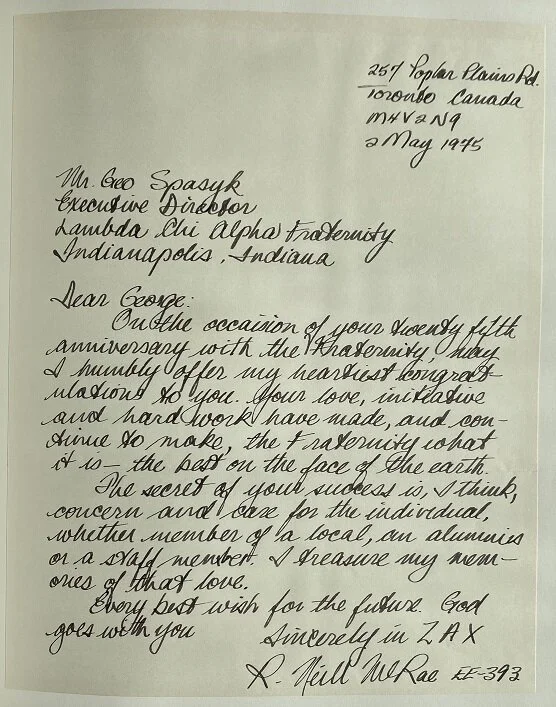 257 Poplar Plains Rd.
Toronto Canada
M4V2N9
2 May 1975
Mr. Geo Spasyk
Executive Director
Lambda Chi Alpha Fraternity
Indianapolis, Indiana
Dear George:
On the occaision of your twenty fifth
anniversary with the Fraternity, may
I humbly offer my heartiest congrat-
ulations to you. Your love, initiative
and hard work have made, and con-
tinue to make, the Fraternity what
it is — the best on the face of the earth.
The secret of your success is, I think,
concern and care for the individual,
whether member of a local, an alumnus
or a staff member. I treasure my mem-
ories of that love.
Every best wish for the future. God
goes with you
Sincerely in ZAX
R. Neill McRae EE-393